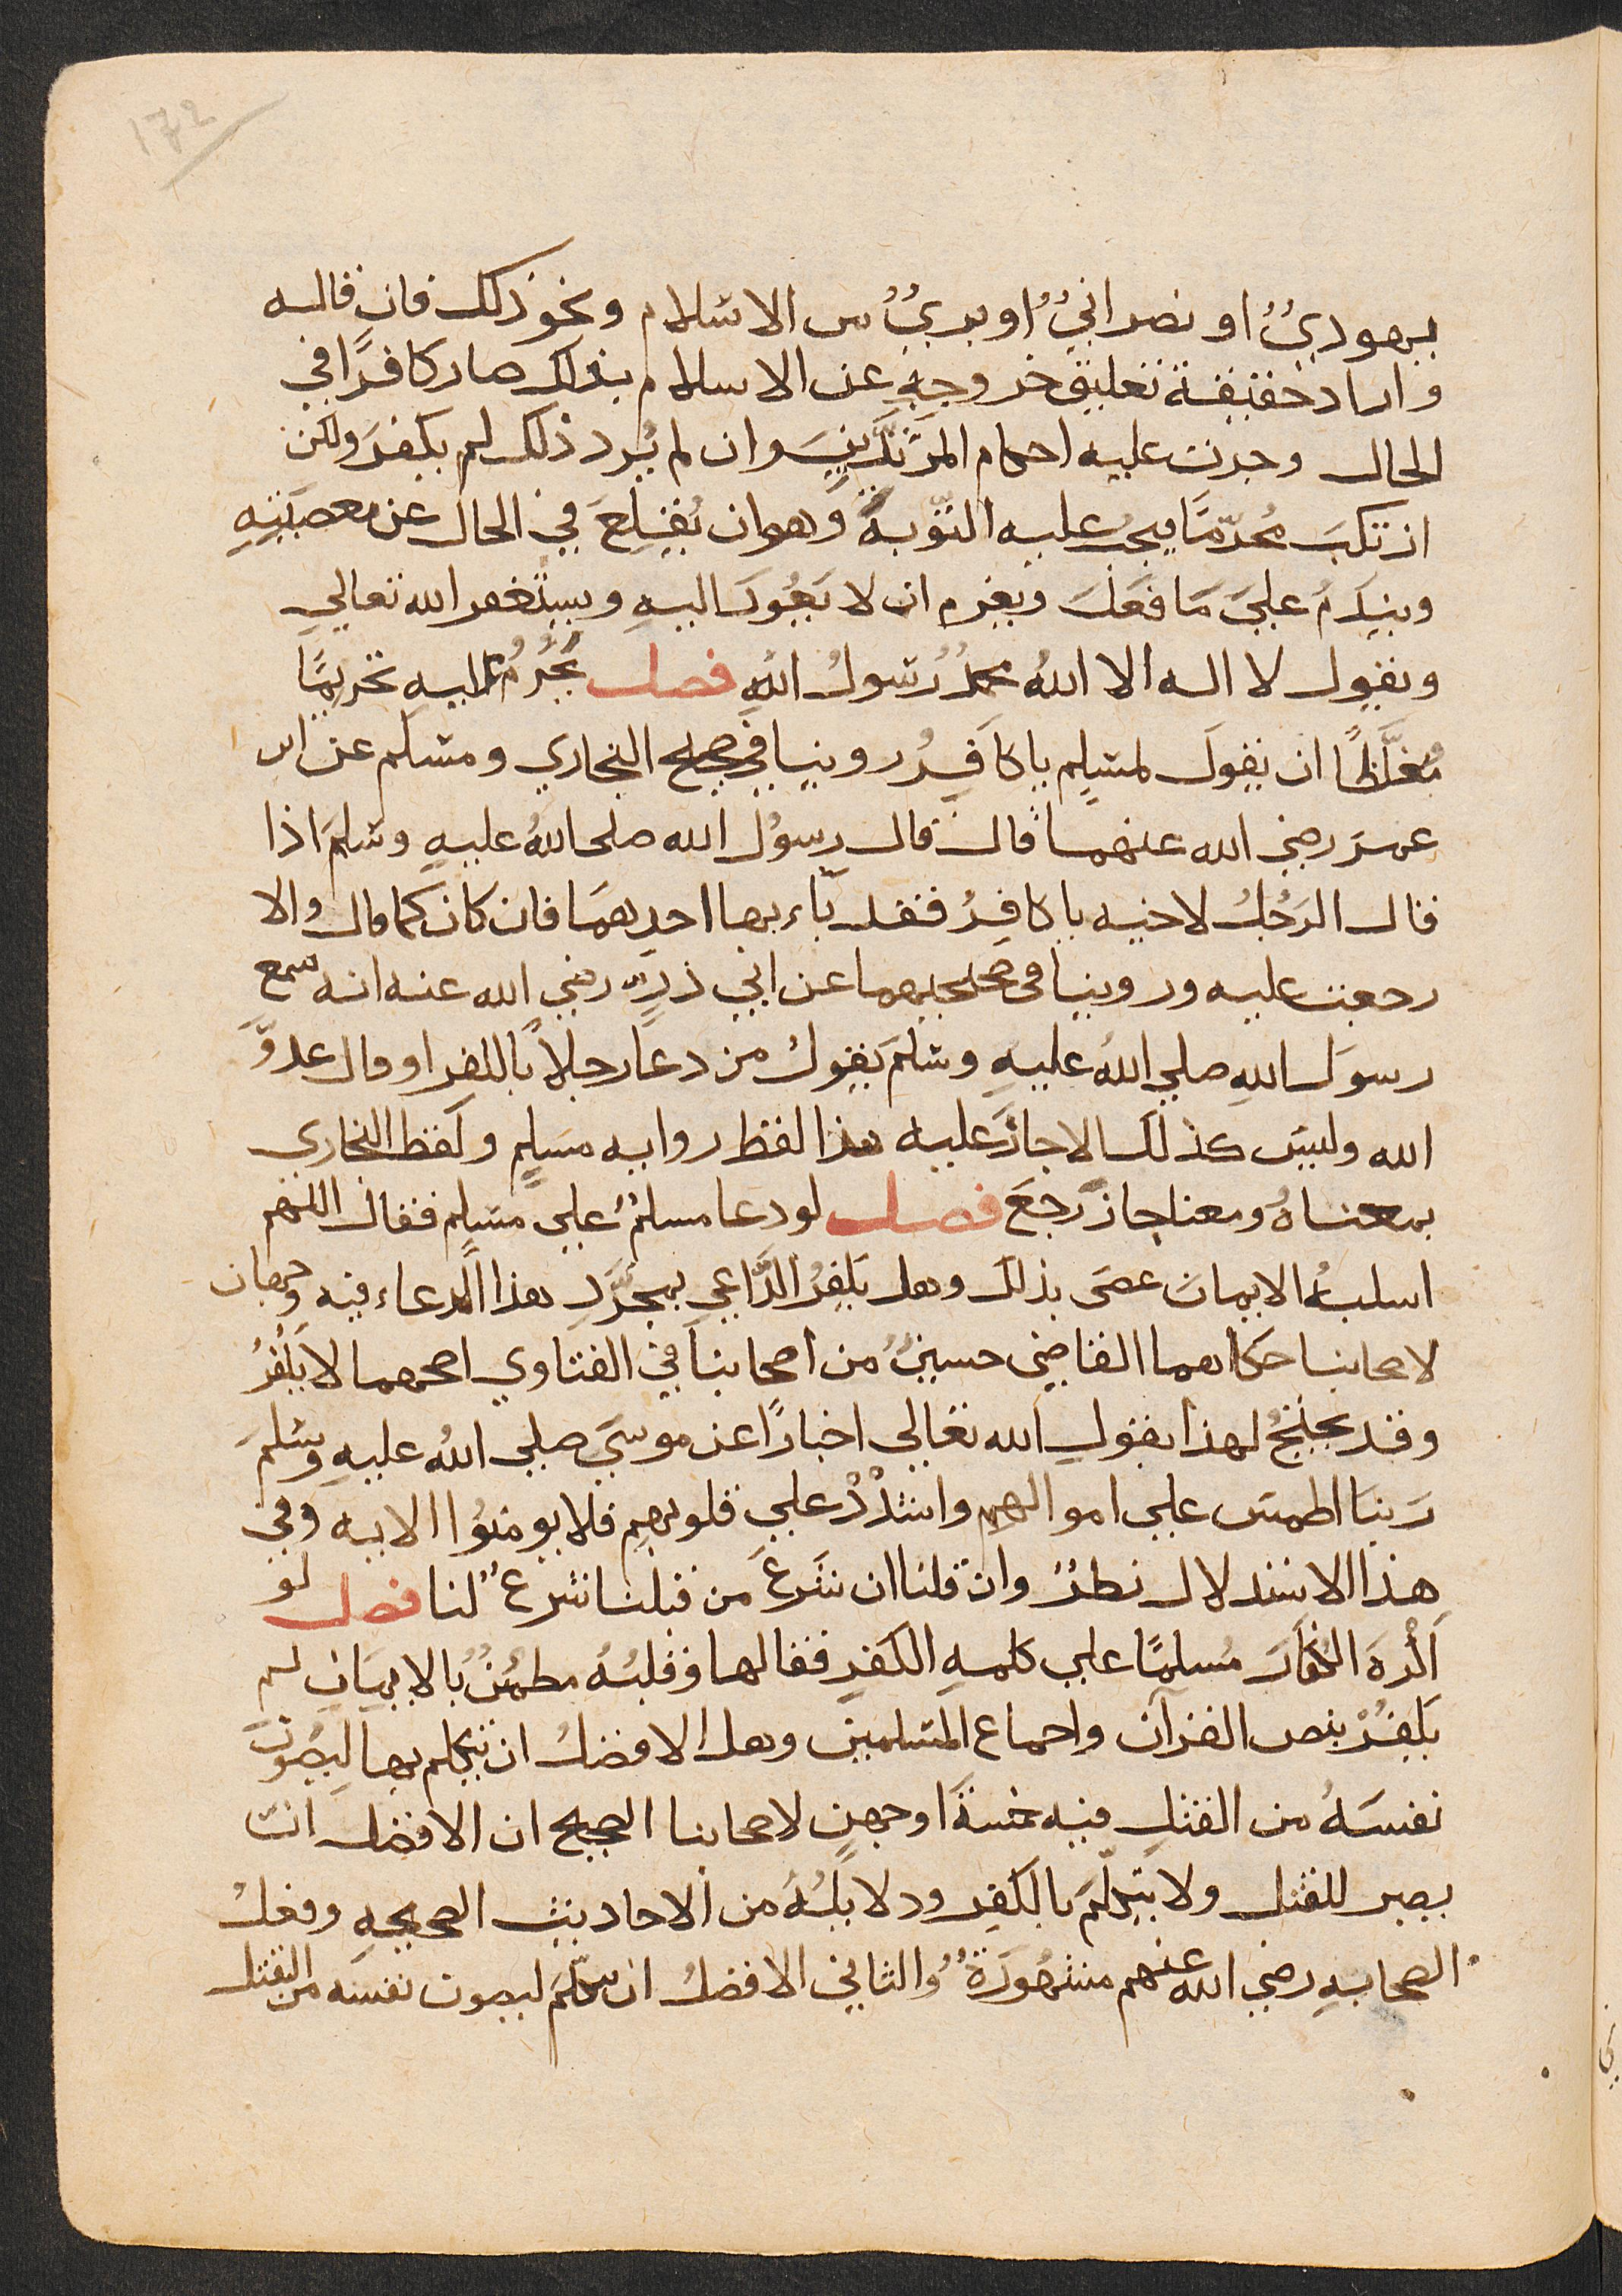 172
يهوديٌ او نصرانيٌ او بريٌ من الاسلام ونحو ذلك فان قاله
واراد حقيقة تعليق خروجهِ عن الاسلام بذلك صار كافرًا في
الحال وجرت عليه احكام المرتدّينَ وان لم يُرد ذلك لم يكفرَ ولكن
ارتكبَ مُحرّمًا يجبُ عليه التوّبةُ وهو ان يُقلِعَ في الحال عن معصيَتِهِ
وينَدمُ عليَ مَا فعَلَ ويعزم ان لا يَعُودَ اليهِ ويستغفر الله تعالي
ويقول لا اله الا اللهُ محمدٌ رسولُ اللهِ فصل يَحْرُمُ عليهِ تحريمًا
مُغلَّظًا ان يقولَ لمسلِم يا كافِرُ روينا في صحيح البخاري ومسلم عن ابن
عمرَ رضي الله عنهما قال قال رسوُل الله صلى اللهُ عليهِ وسلمَ اذا
قال الرَجُلُ لاخيه يا كافِرُ فقد بَاء بها احدهمَا فان كان كما قال والا
رجعت عليه وروينا في صحيحيهما عن ابي ذرٍ رضي الله عنه انه سمع
رسوَل اللهِ صلي اللهُ عليهِ وسلمَ يقولُ من دعَا رجلًا بالكفر او قال عدوَّ
الله وليسَ كذلك الا حارَ عليه هذا لفظ روايه مسَلمٍ ولفظ البخاري
بمعناهُ ومعنا حارَ رجعَ فصل لو دعا مسلمٌ علي مسَلِمٍ فقال اللهم
اسلبهُ الايمان عصَى بذلك وهل يَكفُرُ الدَّاعي بمجرَّدِ هذا الدعاء فيه وجهان
لاصحابنا حكاهما القاضي حسينٌ من اصحابنا في الفتاوي اصحهما لا يَكفُرُ
وقد يحتجُ لهذا بقولِ الله تعالي اخبارًا عن موسيَ صلي اللهُ عليهِ وسلمَ
رَبنا اطمسَ علي اموالهم واشدُدْ علي قلوبهم فلا يومنوُا الايه وفي
هذا الاستدلال نظرٌ وان قلنا ان شَرعَ من قبلنا شرعٌ لنا فصل لو
اكْرهَ الكفارُ مُسلمًا علي كلمهِ الكفرِ فقالها وقلبُهُ مطمئنٌ بالايمَانِ لم
يَكفُرْ بنص القرآن واجماع المسلمينَ وهل الافضلُ ان يتكلم بها ليَصُونَ
نفسَهُ من القتلِ فيه خمسةُ اوجهٍ لاصحابنا الصحيح ان الافضل انْ
يصبر للقتل ولا يتكلّمَ بالكفرِ ودلايلُهُ من الاحاديث الصحيحهِ وفعلُ
الصحابهِ رضي الله عنهم مشهُورَةٌ والثاني الافضلُ ان يتكلَّمَ ليصون نفسَه من القتل